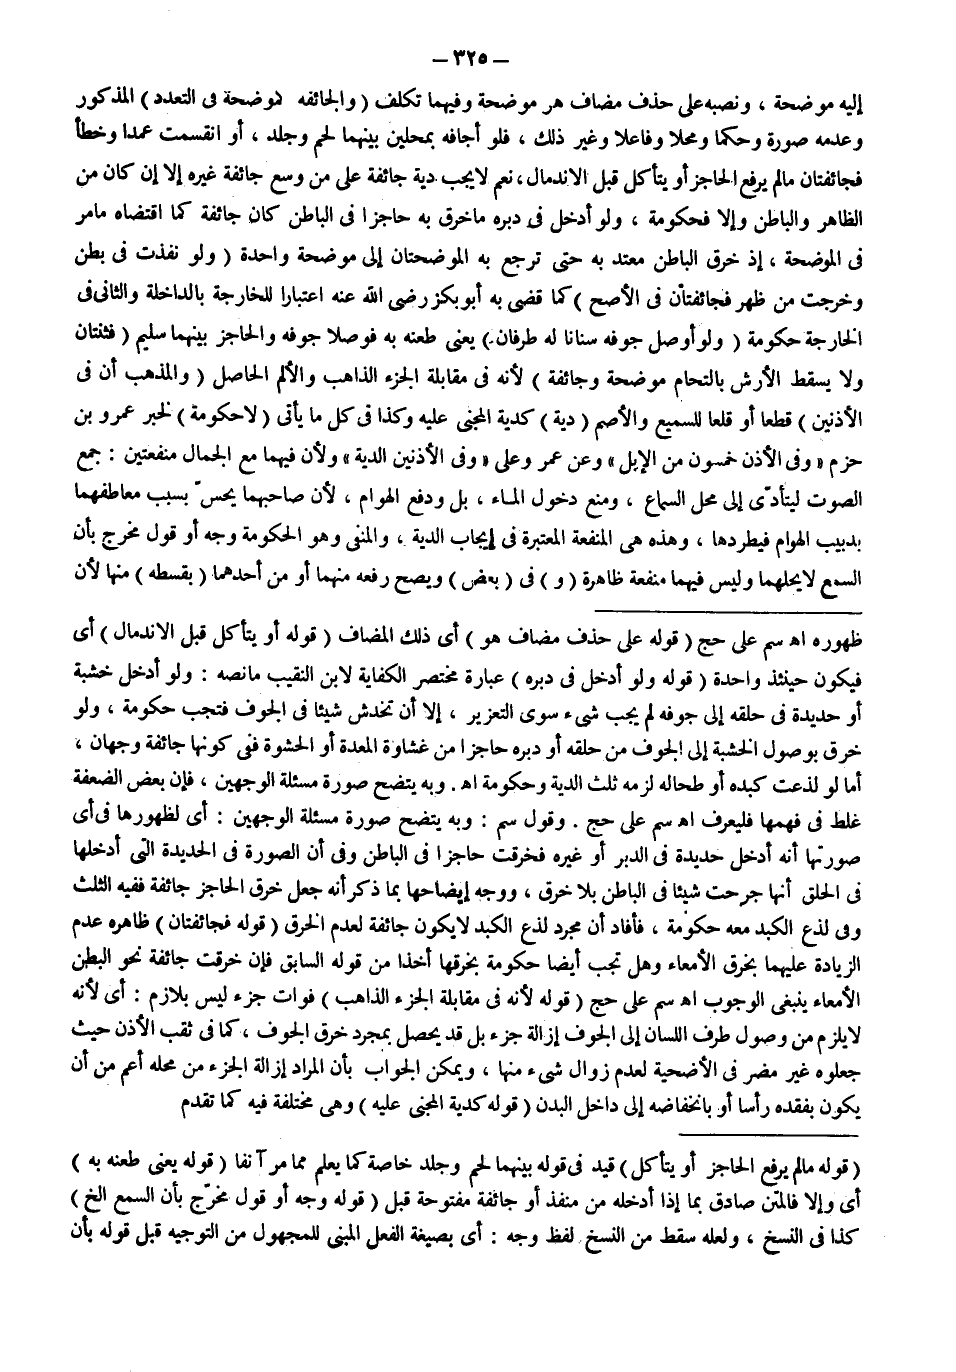 — ٣٢٥ —
إليه موضحة ، ونصبه على حذف مضاف هر موضحة وفيهما تكلف ( والجائفه كموضحة فى التعدد ) المذكور
وعدمه صورة وحكما ومحلا وفاعلا وغير ذلك ، فلو أجافه بمحلين بينهما لحم وجلد ، أو انقسمت عمدا وخطأ
فجائفتان مالم يرفع الحاجز أو يتأكل قبل الاندمال، نعم لايجب دية جائفة على من وسع جائفة غيره إلا إن كان من
الظاهر والباطن وإلا فحكومة ، ولو أدخل فى دبره ماخرق به حاجزا فى الباطن كان جائفة كما اقتضاه مامر
فى الموضحة ، إذ خرق الباطن معتد به حتى ترجع به الموضحتان إلى موضحة واحدة ( ولو نفذت فى بطن
وخرجت من ظهر فجائفتان فى الأصح ) كما قضى به أبو بكر رضى الله عنه اعتبارا للخارجة بالداخلة والثانى فى
الخارجة حكومة ( ولو أوصل جوفه سنانا له طرفان ) يعنى طعنه به فوصلا جوفه والحاجز بينهما سليم ( فثنتان
ولا يسقط الأرش بالتحام موضحة وجائفة ) لأنه فى مقابلة الجزء الذاهب والألم الحاصل ( والمذهب أن فى
الأذنين ) قطعا أو قلعا للسميع والأصم ( دية ) كدية المجنى عليه وكذا فى كل ما يأتى ( لاحكومة ) لخبر عمرو بن
حزم « وفى الأذن خمسون من الإبل » وعن عمر وعلى « وفى الأذنين الدية » ولأن فيهما مع الجمال منفعتين : جمع
الصوت ليتأدّى إلى محل السماع ، ومنع دخول الماء ، بل ودفع الهوام ، لأن صاحبهما يحسّ بسبب معاطفهما
بدبيب الهوام فيطردها ، وهذه هى المنفعة المعتبرة فى إيجاب الدية ، والمنى وهو الحكومة وجه أو قول مخرج بأن
السمع لايحلهما وليس فيهما منفعة ظاهرة ( و ) فى ( بعض ) ويصح رفعه منهما أو من أحدهما ( بقسطه ) منها لأن
ظهوره اه سم على حج ( قوله على حذف مضاف هو ) أى ذلك المضاف ( قوله أو يتأكل قبل الاندمال ) أى
فيكون حينئذ واحدة ( قوله ولو أدخل فى دبره ) عبارة مختصر الكفاية لابن النقيب مانصه : ولو أدخل خشبة
أو حديدة فى حلقه إلى جوفه لم يجب شىء سوى التعزير ، إلا أن تخدش شيئا فى الجوف فتجب حكومة ، ولو
خرق بوصول الخشبة إلى الجوف من حلقه أو دبره حاجزا من غشاوة المعدة أو الحشوة فنى كونها جائفة وجهان ،
أما لو لذعت كبده أو طحاله لزمه ثلث الدية وحكومة اه . وبه يتضح صورة مسئلة الوجهين ، فإن بعض الضعفة
غلط فى فهمها فليعرف اه سم على حج . وقول سم : وبه يتضح صورة مسئلة الوجهين : أى لظهورها فى أى
صورتها أنه أدخل حديدة فى الدبر أو غيره فخرقت حاجزا فى الباطن وفى أن الصورة فى الحديدة التى أدخلها
فى الحلق أنها جرحت شيئا فى الباطن بلا خرق ، ووجه إيضاحها بما ذكر أنه جعل خرق الحاجز جائفة ففيه الثلث
وفى لذع الكبد معه حكومة ، فأفاد أن مجرد لذع الكبد لايكون جائفة لعدم الخرق ( قوله فجائفتان ) ظاهره عدم
الزيادة عليهما بخرق الأمعاء وهل تجب أيضا حكومة بخرقها أخذا من قوله السابق فإن خرقت جائفة نحو البطن
الأمعاء ينبغى الوجوب اه سم على حج ( قوله لأنه فى مقابلة الجزء الذاهب ) فوات جزء ليس بلازم : أى لأنه
لايلزم من وصول طرف اللسان إلى الجوف إزالة جزء بل قد يحصل بمجرد خرق الجوف ، كما فى ثقب الأذن حيث
جعلوه غير مضر فى الأضحية لعدم زوال شىء منها ، ويمكن الجواب بأن المراد إزالة الجزء من محله أعم من أن
يكون بفقده رأسا أو بانخفاضه إلى داخل البدن ( قوله كدية المجنى عليه ) وهى مختلفة فيه كما تقدم
( قوله مالم يرفع الحاجز أو يتأكل ) قيد فى قوله بينهما لحم وجلد خاصة كما يعلم مما مر آنفا ( قوله يعنى طعنه به )
أى وإلا فالمتن صادق بما إذا أدخله من منفذ أو جائفة مفتوحة قبل ( قوله وجه أو قول مخرّج بأن السمع الخ )
كذا فى النسخ ، ولعله سقط من النسخ لفظ وجه : أى بصيغة الفعل المبنى للمجهول من التوجيه قبل قوله بأن